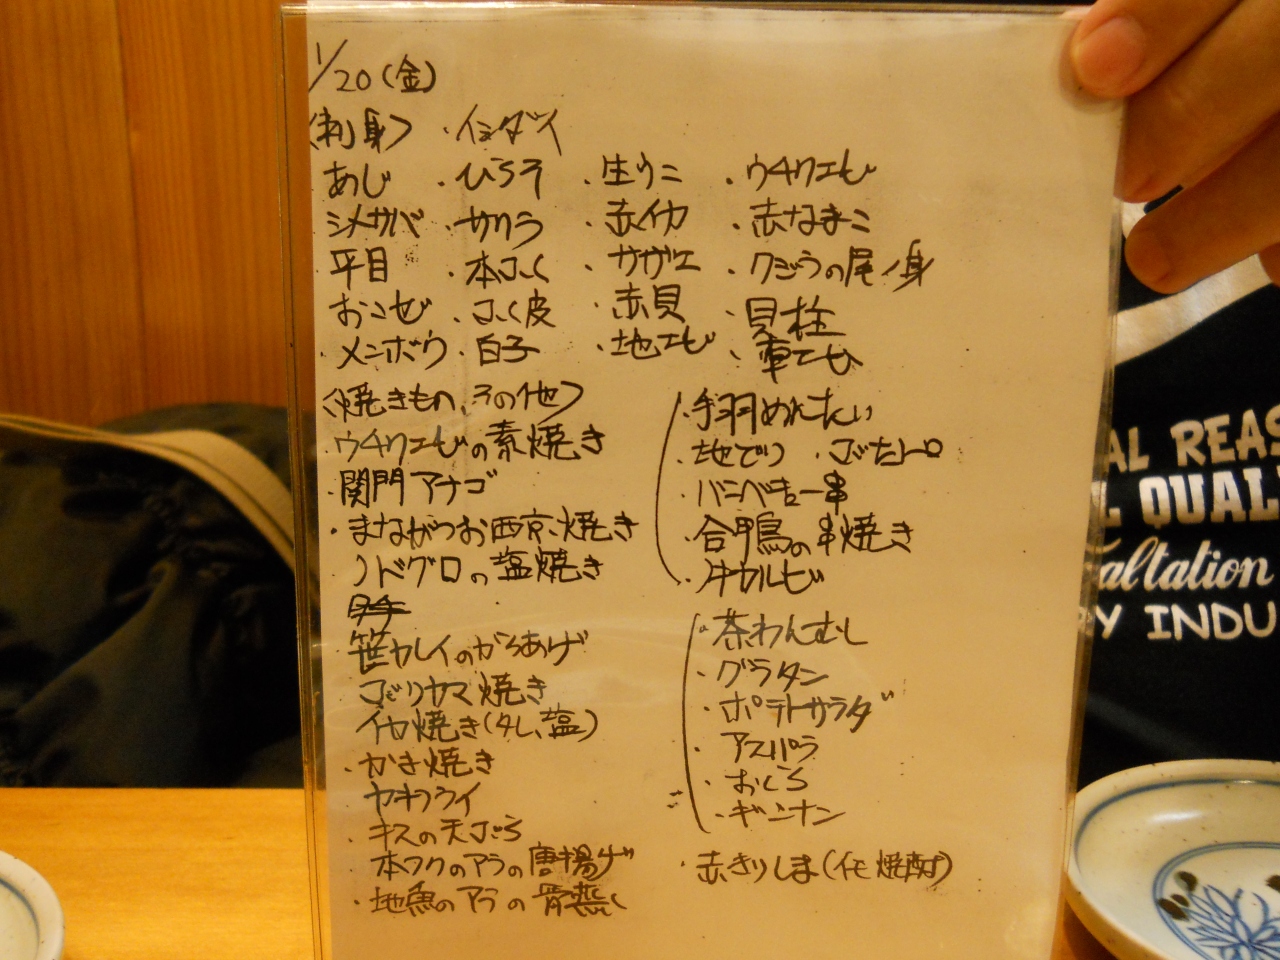 1/20(金)
〈刺身〉 ・イシダイ
あじ ・ひらそ ・生ウニ ・ウチワエビ
シメサバ ・サワラ ・赤イカ ・赤なまこ
・平目 ・本ふく ・サザエ ・クジラの尾ノ身
おこぜ ・ふく皮 ・赤貝 ・貝柱
・メンボウ ・白子 ・地エビ ・車エビ
〈焼きもの、その他〉
ウチワエビの素焼き
・関門アナゴ
・まながつお西京焼き
ノドグロの塩焼き
笹カレイのからあげ
ぶりカマ焼き
イカ焼き(タレ、塩)
・かき焼き
ヤキフク
・キスの天ぷら
本フクのアラの唐揚げ
・地魚のアラの骨蒸し
・手羽めんたい
・地どり ・ぶたトロ
・バーベキュー串
・合鴨の串焼き
・牛カルビ
・茶わんむし
・グラタン
・ポテトサラダ
・アスパラ
・おくら
・ギンナン
・赤きりしま(イモ焼酎)
AL REAS
QUAL
altation
Y INDU